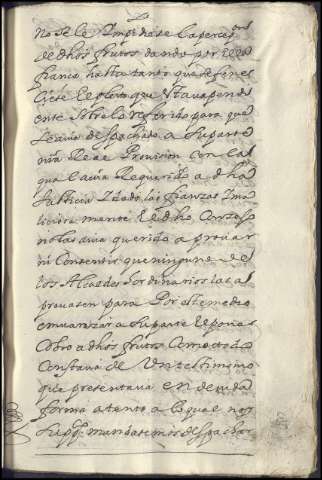 no se le ympidiese la percepcion
de dhos frutos dando por ello
fianza hasta tanto que se fene
ciese el pleito que estava pendi
ente sobre lo referido para que
se avia despachado a su parte
nra Real Provision con la
qual avia Requerido a dha
Justicia y dado las fianzas y ma
liciosamente el dho Conzejo
no las avia querido a provar
ni Consentir que ninguno de
los Alcaldes hordinarios las a
provasen para Por este medio
emvarazar a su parte el poner
Cobro a dhos frutos Como todo
Constava de Un testimonio
que presentava en devida
forma atento a lo qual nos
suppco mandasemos despachar